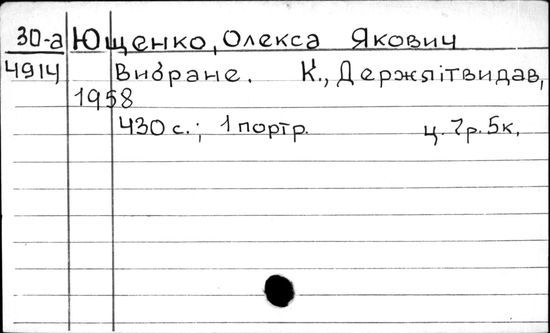 30-а Ющенко, Олекса Якович
4914 Вибране. К., Держлітвидав,
1958
430 с.; 1 портр. ц. 7р. 5к.